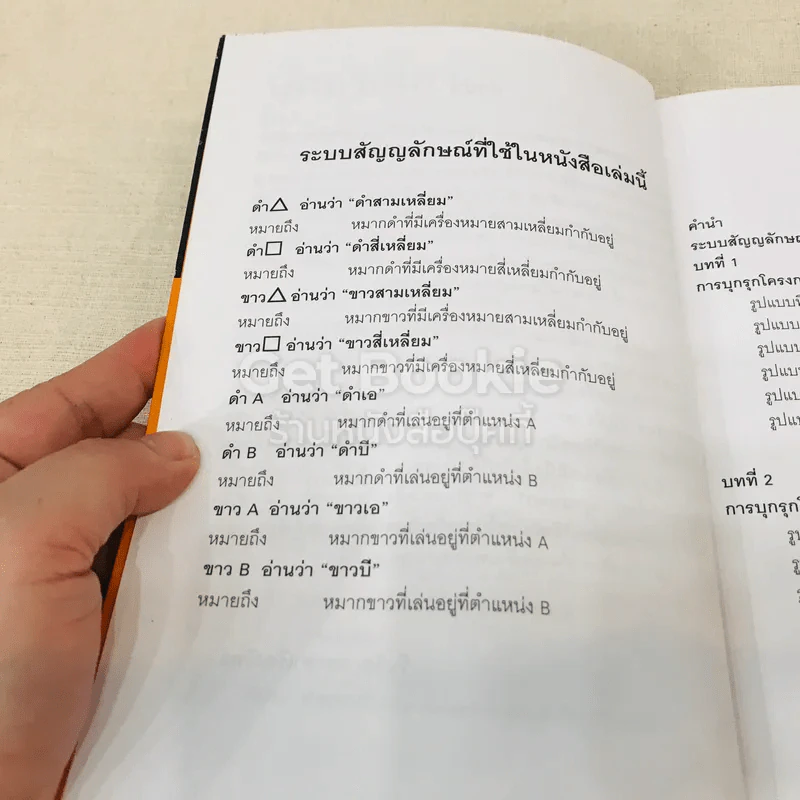 ระบบสัญญลักษณ์ที่ใช้ในหนังสือเล่มนี้
ดำ△ อ่านว่า “ดำสามเหลี่ยม”
หมายถึง หมากดำที่มีเครื่องหมายสามเหลี่ยมกำกับอยู่
ดำ□ อ่านว่า “ดำสี่เหลี่ยม”
หมายถึง หมากดำที่มีเครื่องหมายสี่เหลี่ยมกำกับอยู่
ขาว△ อ่านว่า “ขาวสามเหลี่ยม”
หมายถึง หมากขาวที่มีเครื่องหมายสามเหลี่ยมกำกับอยู่
ขาว□ อ่านว่า “ขาวสี่เหลี่ยม”
หมายถึง หมากขาวที่มีเครื่องหมายสี่เหลี่ยมกำกับอยู่
ดำ A อ่านว่า “ดำเอ”
หมายถึง หมากดำที่เล่นอยู่ที่ตำแหน่ง A
ดำ B อ่านว่า “ดำบี”
หมายถึง หมากดำที่เล่นอยู่ที่ตำแหน่ง B
ขาว A อ่านว่า “ขาวเอ”
หมายถึง หมากขาวที่เล่นอยู่ที่ตำแหน่ง A
ขาว B อ่านว่า “ขาวบี”
หมายถึง หมากขาวที่เล่นอยู่ที่ตำแหน่ง B
Get Bookie
ร้านหนังสือบุ๊คกี้
คำนำ
ระบบสัญญลักษ
บทที่ 1
การบุกรุกโครงก
รูปแบบที
รูปแบบ
รูปแบบ
รูปแบบ
รูปแบ
บทที่ 2
การบุกรุกโ
รู
รู